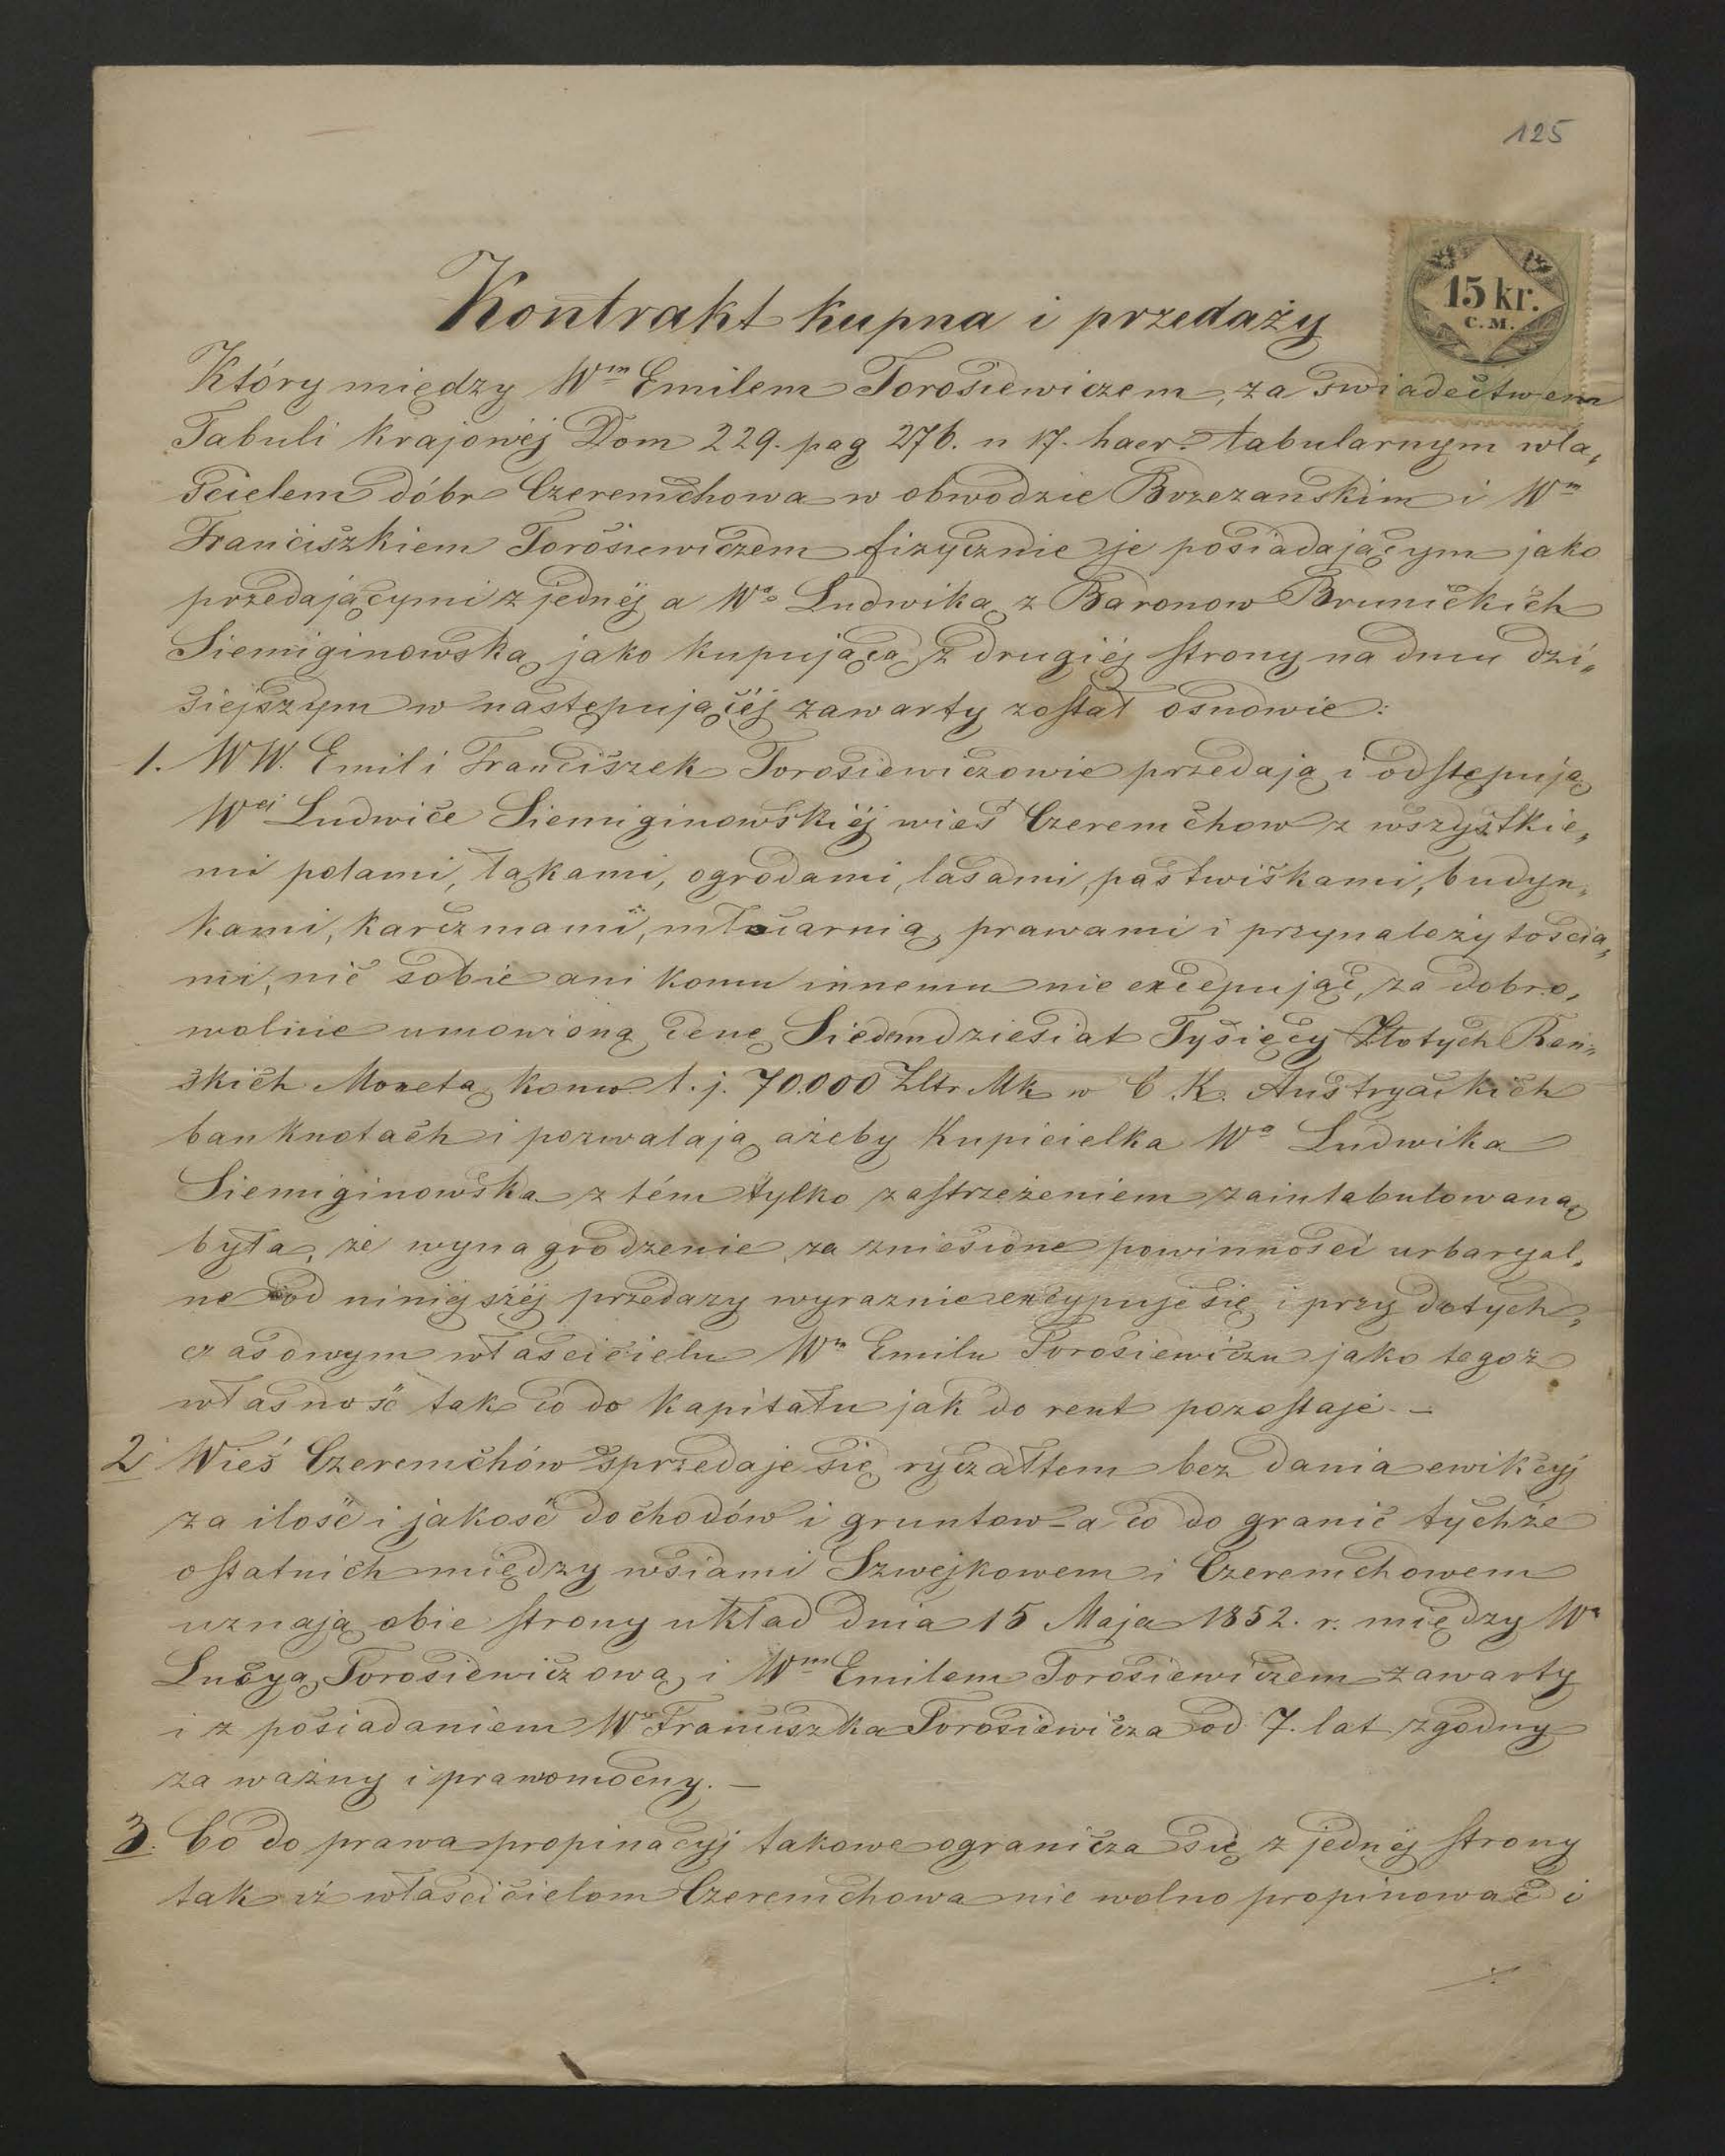 125
15 kr.
C. M.
Kontrakt kupna i przedaży
Który między Wm Emilem Torosiewiczem, za świadectwem
Tabuli krajowéj Dom 229. pag 276. n 17. haer. tabularnym wła„
ścicielem dóbr Czeremchowa w obwodzie Brzezańskim i Wm
Franciszkiem Torosiewiczem fizycznie je posiadającym jako
przedającymi z jednéj a Wą Ludwiką z Baronow Brunickich
Siemiginowską jako kupującą z drugiéj strony na dniu dzi„
siejszym w następującéj zawarty został osnowie:
1. WW. Emil i Franciszek Torosiewiczowie przedają i odstępują
Wéj Ludwice Siemiginowskiéj wieś Czeremchow z wszystkie„
mi polami, łąkami, ogrodami, lasami, pastwiskami, budyn„
kami, karczmami, młocarnią, prawami i przynależytościa„
mi, nic sobie ani komu innemu nie excepując, za dobro„
wolnie umowioną cenę Siedmdziesiat Tysięcy Złotych Ren„
skich Monetą konw. t. j. 70.000 Zltr Mk w C. K. Austryackich
banknotach i pozwalają ażeby Kupicielka Wa Ludwika
Siemiginowska z tém tylko zastrzeżeniem zaintabulowaną
była, że wynagrodzenie za zniesione powinności urbaryal„
ne od niniejszéj przedaży wyraznie excypuje się i przy dotych„
czasowym właścicielu Wm Emilu Torosiewiczu jako tegoż
własność tak co do kapitału jak do rent pozostaje. —
2. Wieś Czeremchów sprzedaje się ryczałtem bez dania ewikcyj
za ilość i jakość dochodów i gruntow - a co do granic tychże
ostatnich między wsiami Szwejkowem i Czeremchowem
uznają obie strony układ dnia 15 Maja 1852. r. między Wą
Lucyą Torosiewiczową i Wm Emilem Torosiewiczem zawarty
i z posiadaniem Wo Franciszka Torosiewicza od 7. lat zgodny
za ważny i prawomocny. —
3. Co do prawa propinacyj takowe ogranicza się z jednéj strony
tak iż właścicielom Czeremchowa nie wolno propinować i
./.